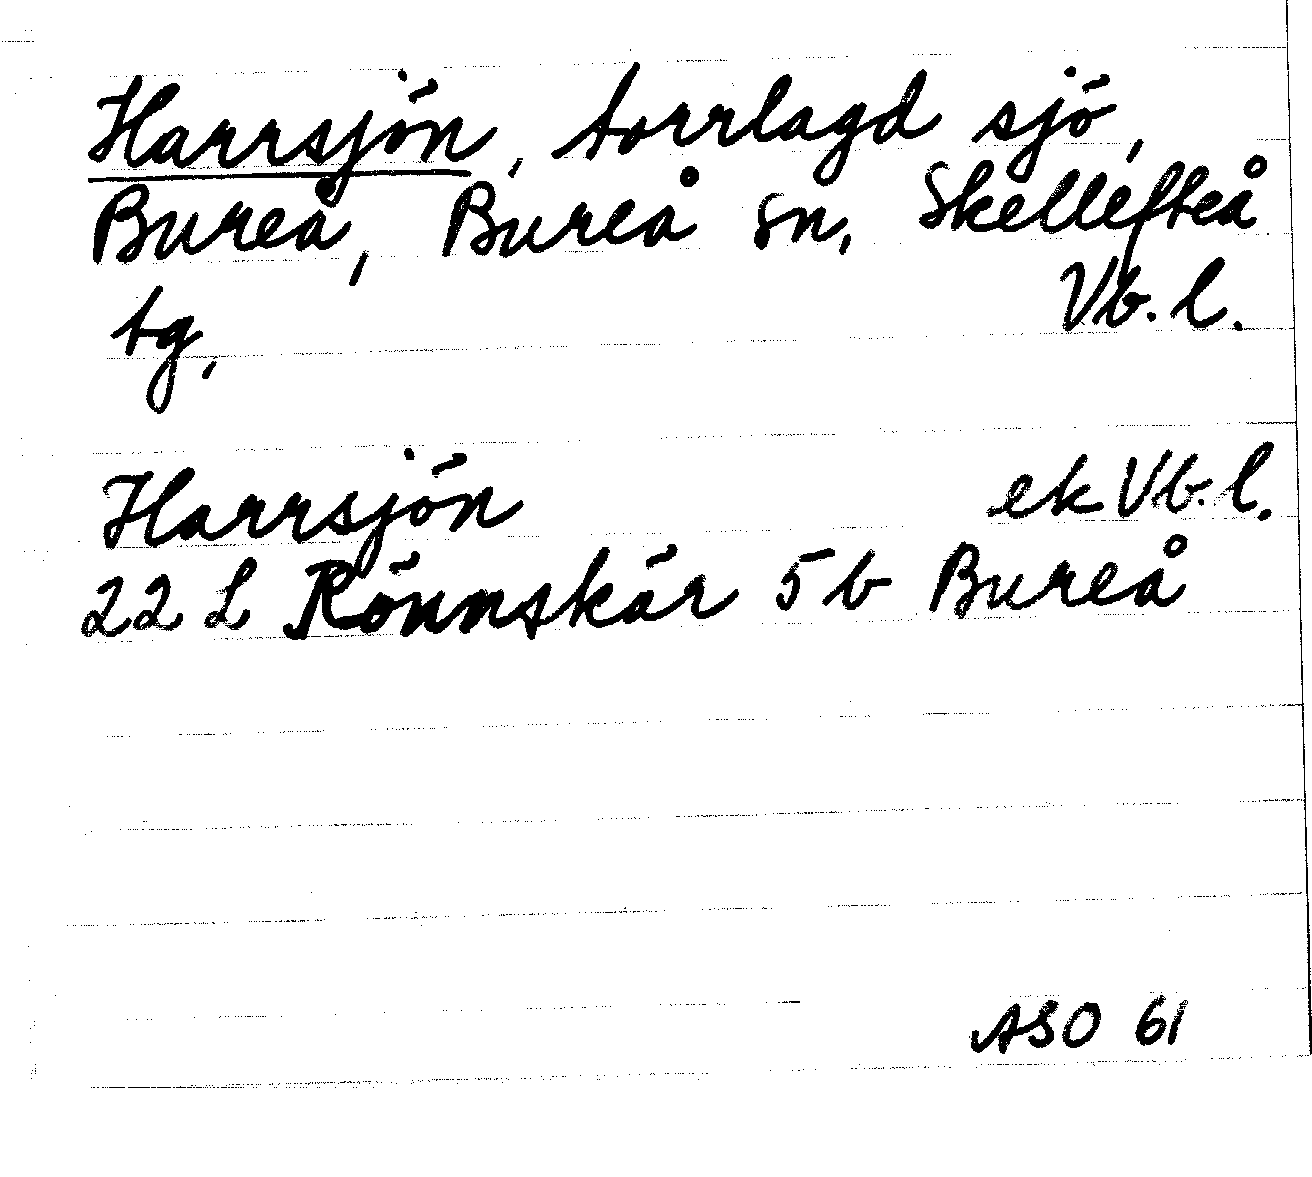 Harrsjön, torrlagd sjö,
Bureå, Bureå sn, Skellefteå
tg, Vb. l.
Harrsjön ek Vb. l.
22 L Rönnskär 5 b Bureå
ASO 61